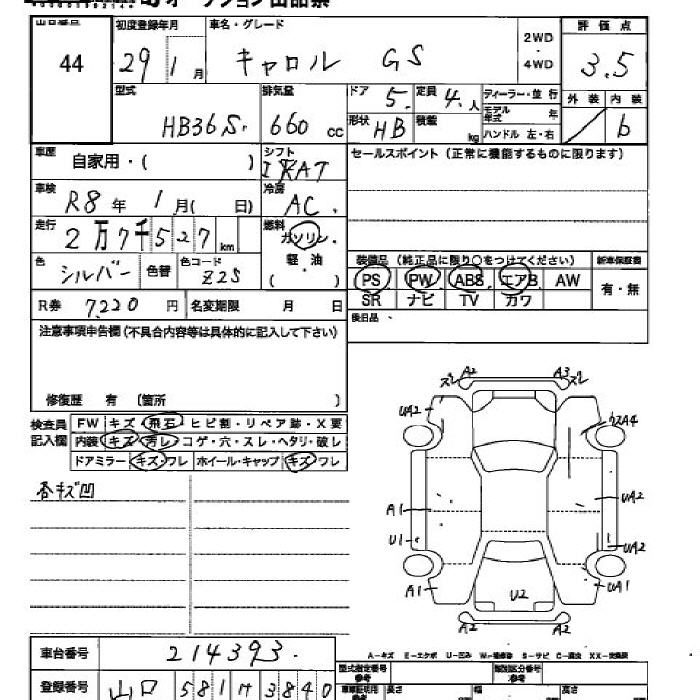 オークション出品票
出品番号 初度登録年月 車名・グレード 2WD・4WD 評価点
44 29 1月 キャロル GS 3.5
型式 排気量 ドア 5. 定員 4.人 ディーラー・並行 外装 内装
HB36S. 660cc 形状 HB 積載 kg モデル年式 年 b
ハンドル 左・右
車歴 シフト セールスポイント(正常に機能するものに限ります)
自家用・( )
車検 冷房
R8年 1月( 日) AC.
走行 燃料
2万7千527km ガソリン
色 色替 色コード 軽・油 装備品(純正品に限り○をつけてください) 新車保証書
シルバー Z2S ( ) PS PW ABS エアB AW 有・無
R券 7220円 名変期限 月 日 SR ナビ TV カワ
後日品
注意事項申告欄(不具合内容等は具体的に記入して下さい)
修復歴 有 (箇所 )
検査員記入欄 FW キズ・飛石・ヒビ割・リペア跡・X要
内装 キズ・汚レ・コゲ・穴・スレ・ヘタリ・破レ
ドアミラー キズ・ワレ ホイール・キャップ キズ・ワレ
各キズ凹
スレ A2 A3 スレ
UA2 A4
A1 UA2
U1 UA2
A1 U2 UA1
A2 A2
車台番号 214393. A-キズ E-エクボ U-凹ミ W-補修跡 S-サビ C-腐食 XX-交換済
登録番号 山口 581 サ 3840 型式指定番号 参考 類別区分番号 参考
長さ 幅 高さ